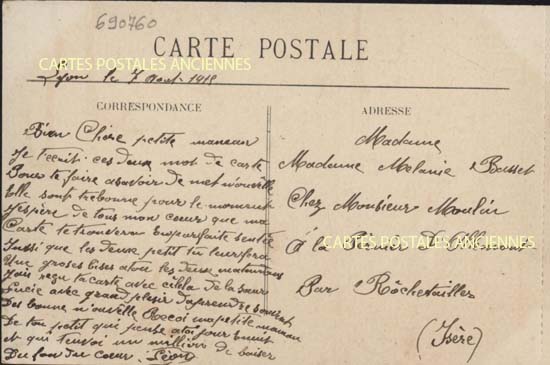 690760
CARTE POSTALE
CARTES POSTALES ANCIENNES
Lyon le 7 Aout 1918
CORRESPONDANCE
Bien Chère petite maman
Je t'ecrit ces deux mot de carte
Pour te faire asavoir de met nouvelle
Elle sont trebonne pour le moment
J'espère de tous mon cœur que ma
Carte te trouvera en parfaite sentée
Aussi que les deux petit tu leur fera
Une groses bises atou les deux
Jais reçu ta carte avec celela de la sœur
Lucie avec grand plesir daprendre
Des bonne nouvelle Recoi ma petite maman
De ton petit qui pense atoi pour
et qui t'envoi un milliers de baiser
Du fon du cœur. Léon
ADRESSE
Madame
Madame Melanie Basset
Chez Monsieur Moulin
À la
CARTES POSTALES ANCIENNES
Par Rôchetailler
(Isère)